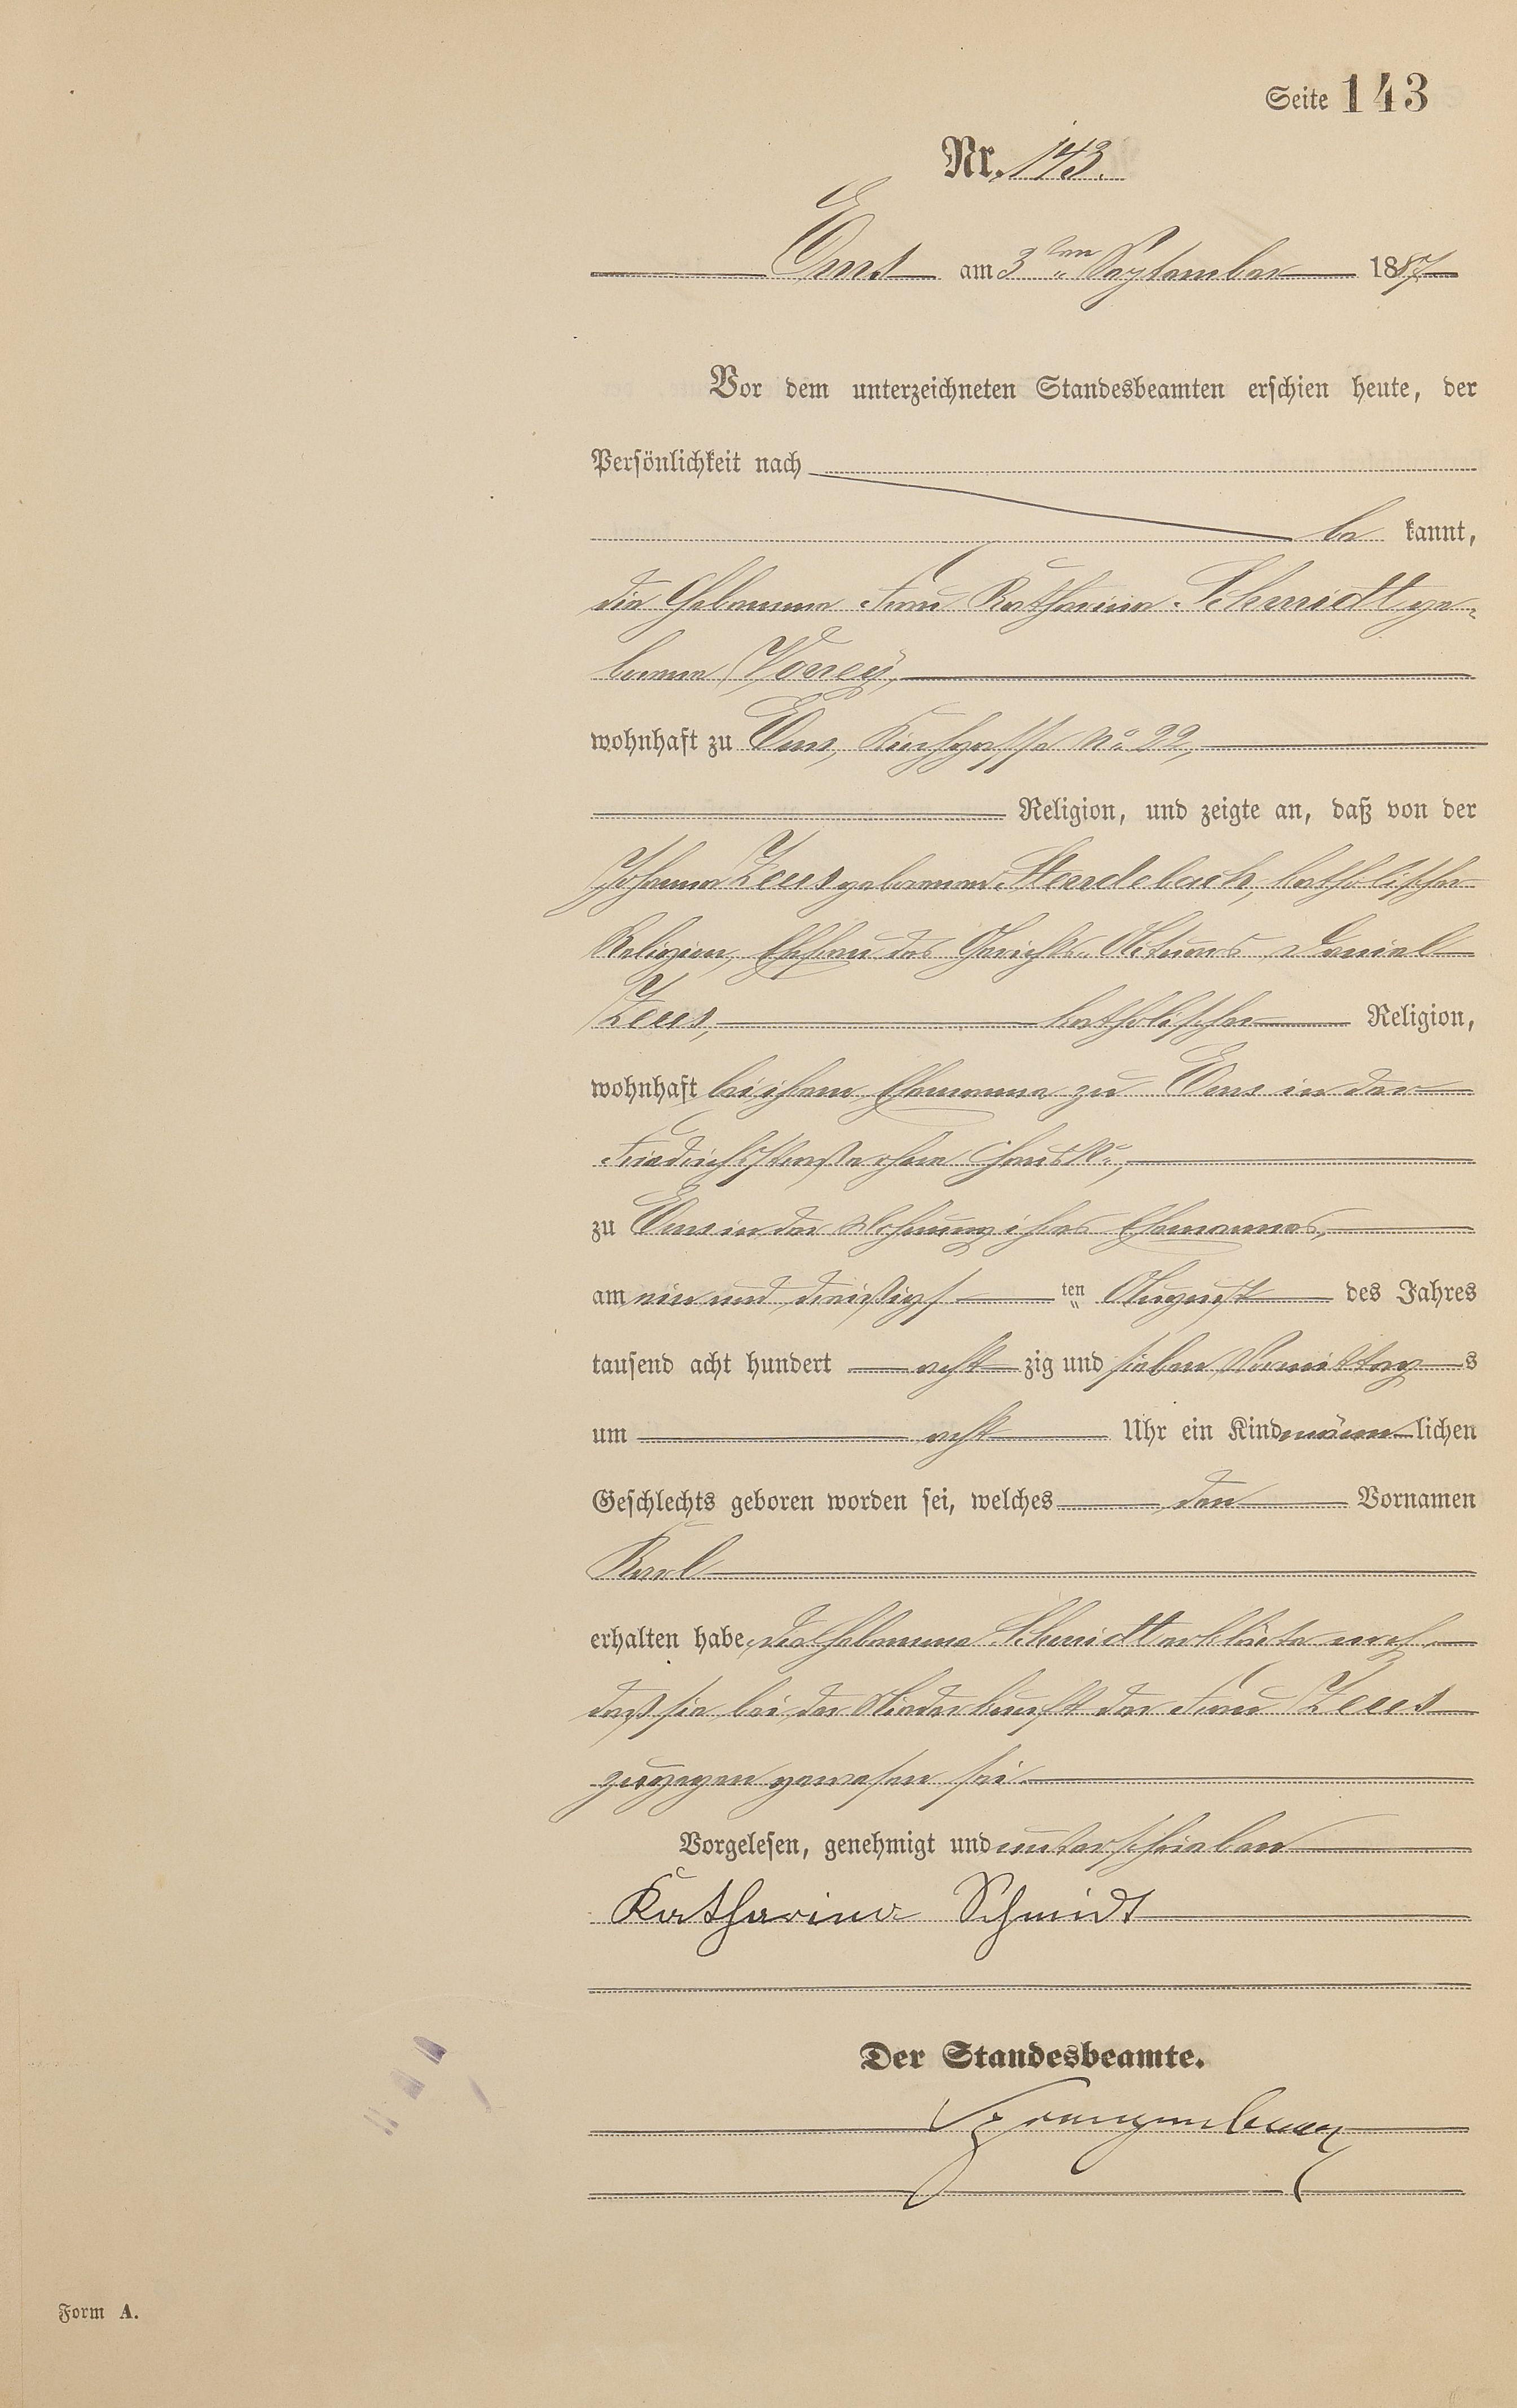 Seite 143
Nr. 143.
Ems am 3ten September 1887
Vor dem unterzeichneten Standesbeamten erschien heute, der
Persönlichkeit nach
be kannt,
die Hebamme Frau Katharina Schmidt ge-
borene
wohnhaft zu Ems, Kirchgasse No 22,
Religion, und zeigte an, daß von der
Johanna Zeus geborenen katholischer
Religion, Ehefrau des Gerichts-Aktuars Daniel
Zeus, katholischer Religion,
wohnhaft bei ihrem Ehemanne zu Ems in der
Friedrichsstraße ohne Haus No,
zu Ems in der Wohnung ihres Ehemannes,
am ein und dreißigs ten August des Jahres
tausend acht hundert acht zig und sieben Vormittag s
um acht Uhr ein Kind männ lichen
Geschlechts geboren worden sei, welches den Vornamen
Karl
erhalten habe, die Hebamme Schmidt erklärte noch,
daß sie bei der Niederkunft der Frau Zeus
zugegen gewesen sei.
Vorgelesen, genehmigt und unterschrieben
Katharina Schmidt
Der Standesbeamte.
Form A.